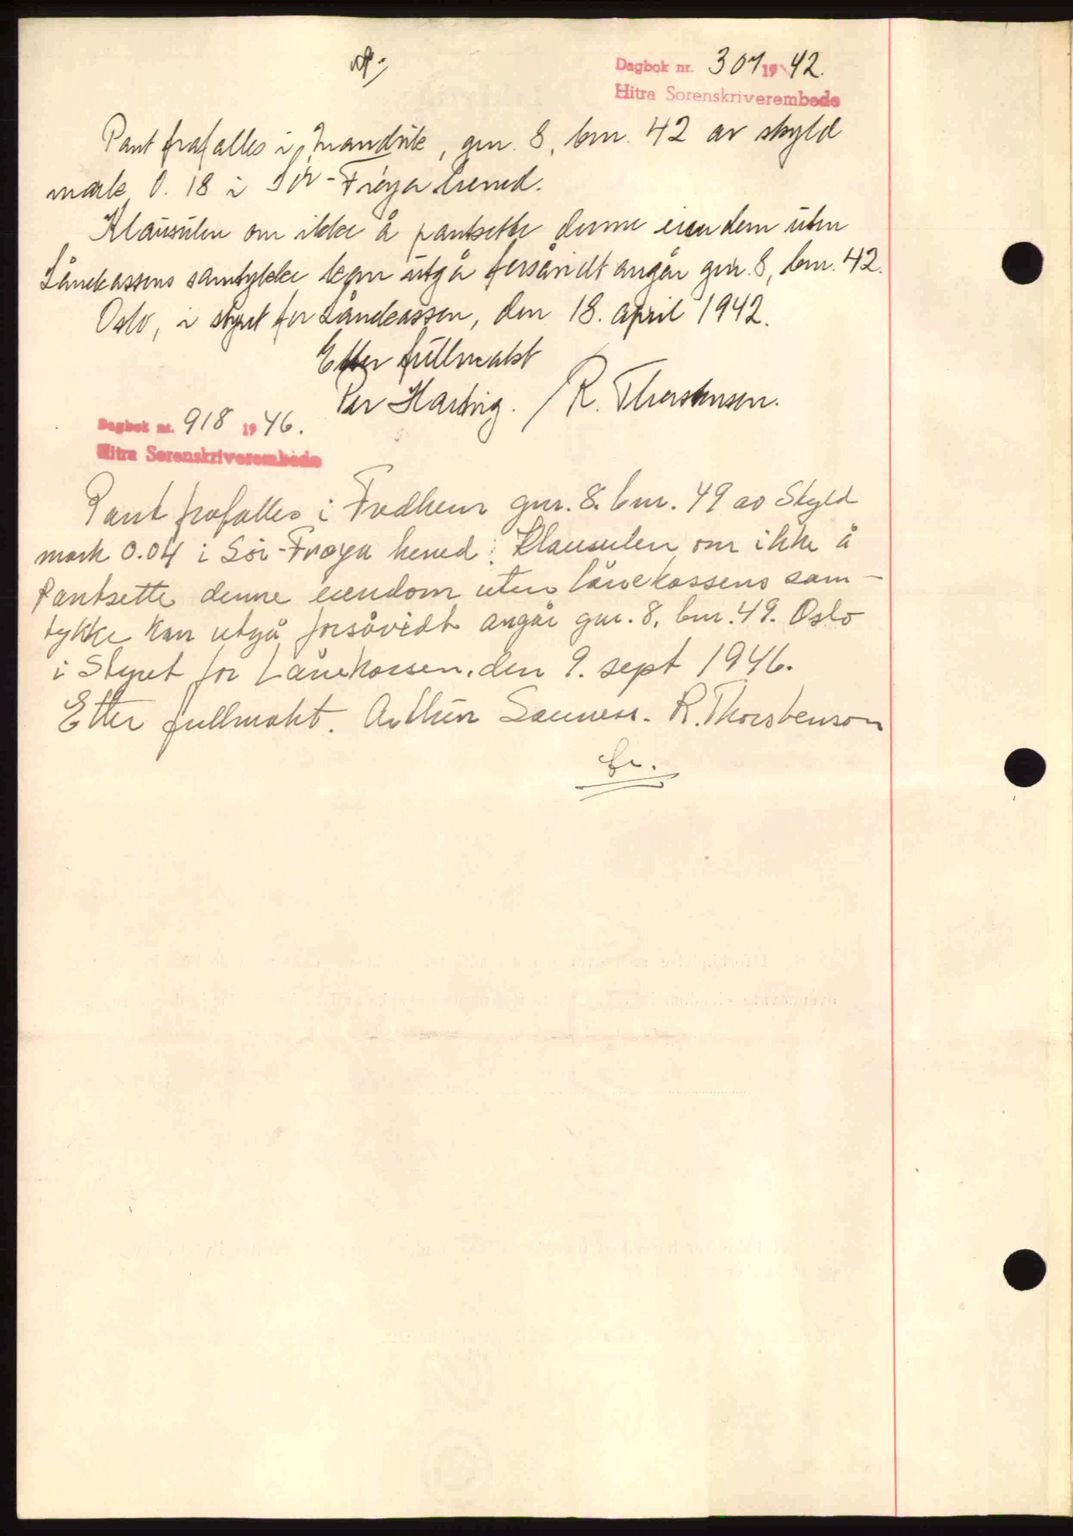 Dagbok nr. 307 1942.
Hitra Sorenskriverembede
Pant frafalles i Grandvik, gnr. 8, bnr. 42 av skyld
mark 0.18 i Sör-Fröya herred.
Klausulen om ikke å pantsette denne eiendem uten
Lånekassens samtykke kan utgå forsåvidt angår gnr. 8, bnr. 42.
Oslo, i styret for Lånekassen, den 18. april 1942.
Etter fullmakt
Per Hartvig. / R. Thorstensen.
Dagbok nr. 918 1946.
Hitra Sorenskriverembede
Pant frafalles i Fredheim gnr. 8. bnr. 49 av Skyld
mark 0.04 i Sör-Fröya herred. Klausulen om ikke å
pantsette denne eiendom uten lånekassens sam-
tykke kan utgå forsåvidt angår gnr. 8, bnr. 49. Oslo
i Styret for Lånekassen, den 9. sept 1946.
Etter fullmakt. Arthur R. Thorstenson